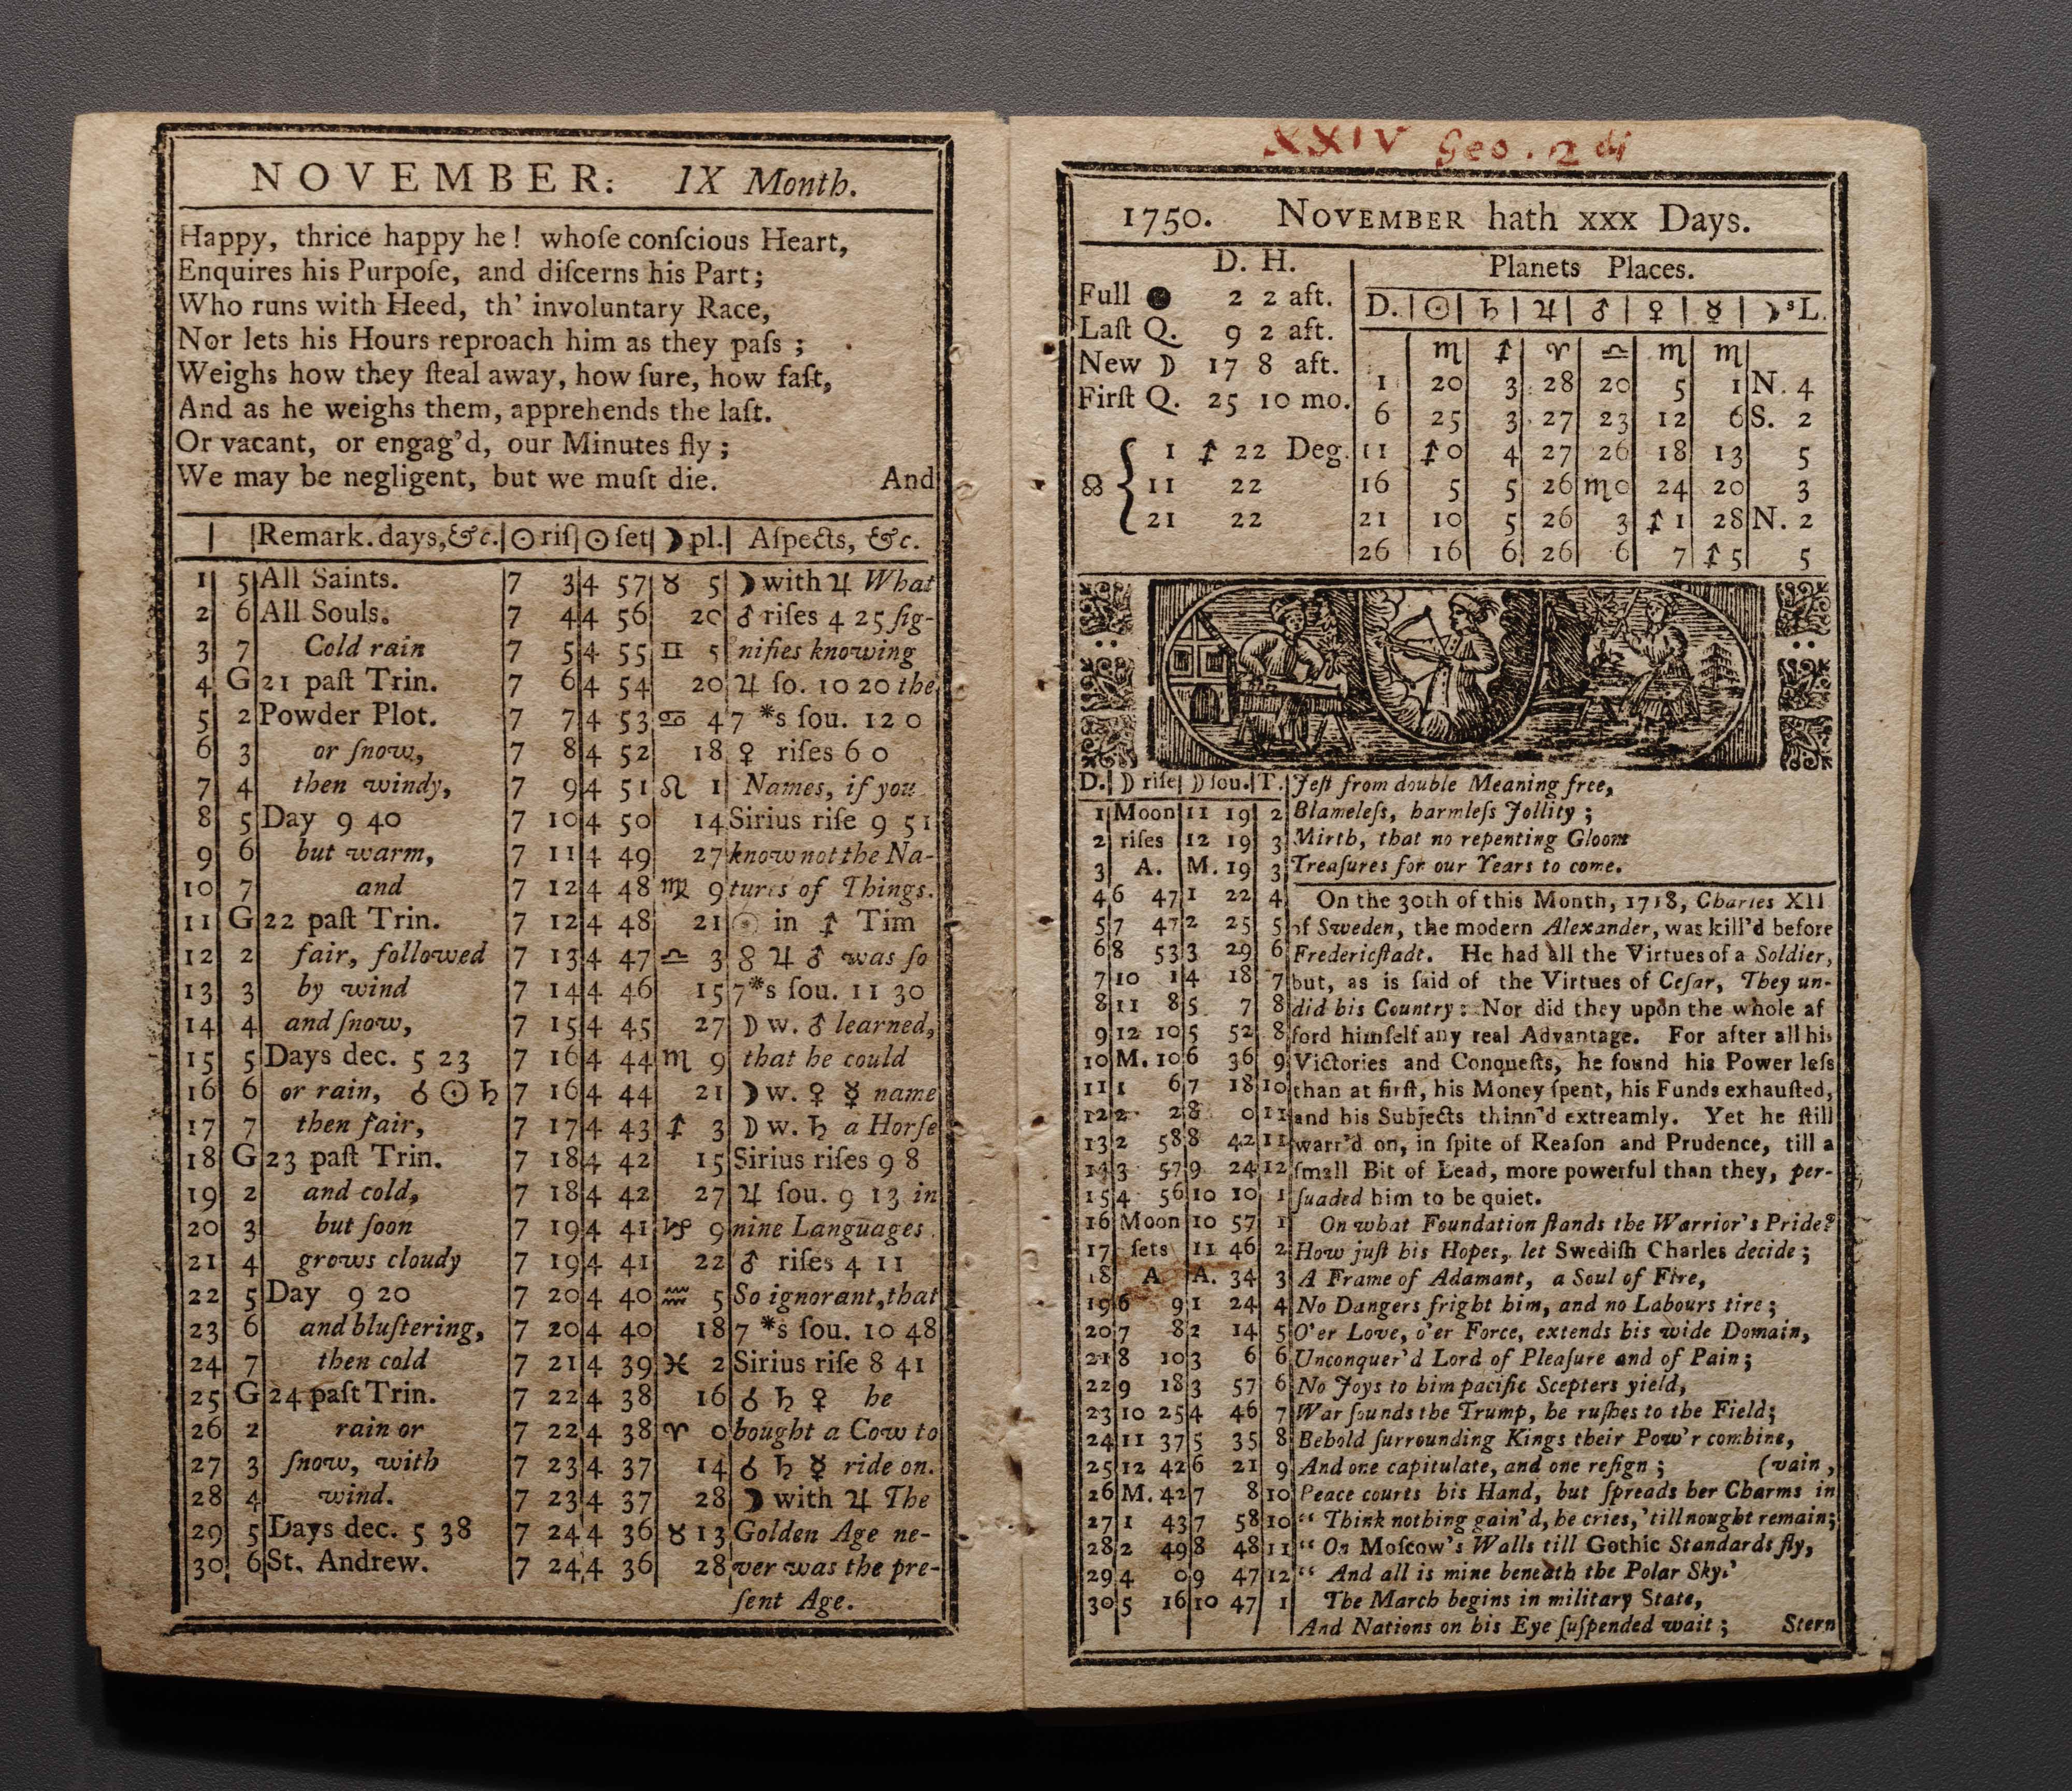 NOVEMBER. IX Month.
Happy, thrice happy he! whoſe conſcious Heart,
Enquires his Purpoſe, and diſcerns his Part;
Who runs with Heed, th' involuntary Race,
Nor lets his Hours reproach him as they paſs;
Weighs how they ſteal away, how ſure, how faſt,
And as he weighs them, apprehends the laſt.
Or vacant, or engag'd, our Minutes fly;
We may be negligent, but we muſt die. And
Remark. days, &c. ☉ riſ ☉ ſet ☽ pl. Aſpects, &c.
1 5 All Saints. 7 3 4 57 ♉ 5 ☽ with ♃ What
2 6 All Souls. 7 4 4 56 20 ♂ riſes 4 25 ſig-
3 7 Cold rain 7 5 4 55 ♊ 5 nifies knowing
4 G 21 paſt Trin. 7 6 4 54 20 ♃ ſo. 10 20 the
5 2 Powder Plot. 7 7 4 53 ♋ 4 7 *s ſou. 12 0
6 3 or ſnow, 7 8 4 52 18 ♀ riſes 6 0
7 4 then windy, 7 9 4 51 ♌ 1 Names, if you
8 5 Day 9 40 7 10 4 50 14 Sirius riſe 9 51
9 6 but warm, 7 11 4 49 27 know not the Na-
10 7 and 7 12 4 48 ♍ 9 tures of Things.
11 G 22 paſt Trin. 7 12 4 48 21 ☉ in ♐ Tim
12 2 fair, followed 7 13 4 47 ♎ 3 ☍ ♃ ♂ was ſo
13 3 by wind 7 14 4 46 15 7 *s ſou. 11 30
14 4 and ſnow, 7 15 4 45 27 ☽ w. ♂ learned,
15 5 Days dec. 5 23 7 16 4 44 ♏ 9 that he could
16 6 or rain, ☌ ☉ ♄ 7 16 4 44 21 ☽ w. ♀ ☿ name
17 7 then fair, 7 17 4 43 ♐ 3 ☽ w. ♄ a Horſe
18 G 23 paſt Trin. 7 18 4 42 15 Sirius riſes 9 8
19 2 and cold, 7 18 4 42 27 ♃ ſou. 9 13 in
20 3 but ſoon 7 19 4 41 ♑ 9 nine Languages.
21 4 grows cloudy 7 19 4 41 22 ♂ riſes 4 11
22 5 Day 9 20 7 20 4 40 ♒ 5 So ignorant, that
23 6 and bluſtering, 7 20 4 40 18 7 *s ſou. 10 48
24 7 then cold 7 21 4 39 ♓ 2 Sirius riſe 8 41
25 G 24 paſt Trin. 7 22 4 38 16 ☌ ♄ ♀ he
26 2 rain or 7 22 4 38 ♈ 0 bought a Cow to
27 3 ſnow, with 7 23 4 37 14 ☌ ♄ ☿ ride on.
28 4 wind. 7 23 4 37 28 ☽ with ♃ The
29 5 Days dec. 5 38 7 24 4 36 ♉ 13 Golden Age ne-
30 6 St. Andrew. 7 24 4 36 28 ver was the pre-
ſent Age.
XXIV Geo. 2 di
1750. NOVEMBER hath XXX Days.
D. H.
Full ● 2 2 aft.
Laſt Q. 9 2 aft.
New ☽ 17 8 aft.
Firſt Q. 25 10 mo.
☊ 1 ♐ 22 Deg.
11 22
21 22
Planets Places.
D. ☉ ♄ ♃ ♂ ♀ ☿ ☽'s L.
♏ ♐ ♈ ♎ ♏ ♏
1 20 3 28 20 5 1 N. 4
6 25 3 27 23 12 6 S. 2
11 ♐ 0 4 27 26 18 13 5
16 5 5 26 ♏ 0 24 20 3
21 10 5 26 3 ♐ 1 28 N. 2
26 16 6 26 6 7 ♐ 5 5
D. ☽ riſe ☽ ſou. T.
1 Moon 11 19 2
2 riſes 12 19 3
3 A. M. 19 3
4 6 47 1 22 4
5 7 47 2 25 5
6 8 53 3 29 6
7 10 1 4 18 7
8 11 8 5 7 8
9 12 10 5 52 8
10 M. 10 6 36 9
11 1 6 7 18 10
12 2 2 8 0 11
13 2 58 8 42 11
14 3 57 9 24 12
15 4 56 10 10 1
16 Moon 10 57 1
17 ſets 11 46 2
18 A A. 34 3
19 6 9 1 24 4
20 7 8 2 14 5
21 8 10 3 6 6
22 9 18 3 57 6
23 10 25 4 46 7
24 11 37 5 35 8
25 12 42 6 21 9
26 M. 42 7 8 10
27 1 43 7 58 10
28 2 49 8 48 11
29 4 0 9 47 12
30 5 16 10 47 1
Jeſt from double Meaning free,
Blameleſs, harmleſs Jollity;
Mirth, that no repenting Gloom
Treaſures for our Years to come.
On the 30th of this Month, 1718, Charles XII
of Sweden, the modern Alexander, was kill'd before
Fredericſtadt. He had all the Virtues of a Soldier,
but, as is ſaid of the Virtues of Ceſar, They un-
did his Country: Nor did they upon the whole af
ford himſelf any real Advantage. For after all his
Victories and Conqueſts, he found his Power leſs
than at firſt, his Money ſpent, his Funds exhauſted,
and his Subjects thinn'd extreamly. Yet he ſtill
warr'd on, in ſpite of Reaſon and Prudence, till a
ſmall Bit of Lead, more powerful than they, per-
ſuaded him to be quiet.
On what Foundation ſtands the Warrior's Pride?
How juſt his Hopes, let Swediſh Charles decide;
A Frame of Adamant, a Soul of Fire,
No Dangers fright him, and no Labours tire;
O'er Love, o'er Force, extends his wide Domain,
Unconquer'd Lord of Pleaſure and of Pain;
No Joys to him pacific Scepters yield,
War ſounds the Trump, he ruſhes to the Field;
Behold ſurrounding Kings their Pow'r combine,
And one capitulate, and one reſign; (vain,
Peace courts his Hand, but ſpreads her Charms in
“ Think nothing gain'd, he cries, 'till nought remain;
“ On Moſcow's Walls till Gothic Standards fly,
“ And all is mine beneath the Polar Sky.'
The March begins in military State,
And Nations on his Eye ſuſpended wait; Stern